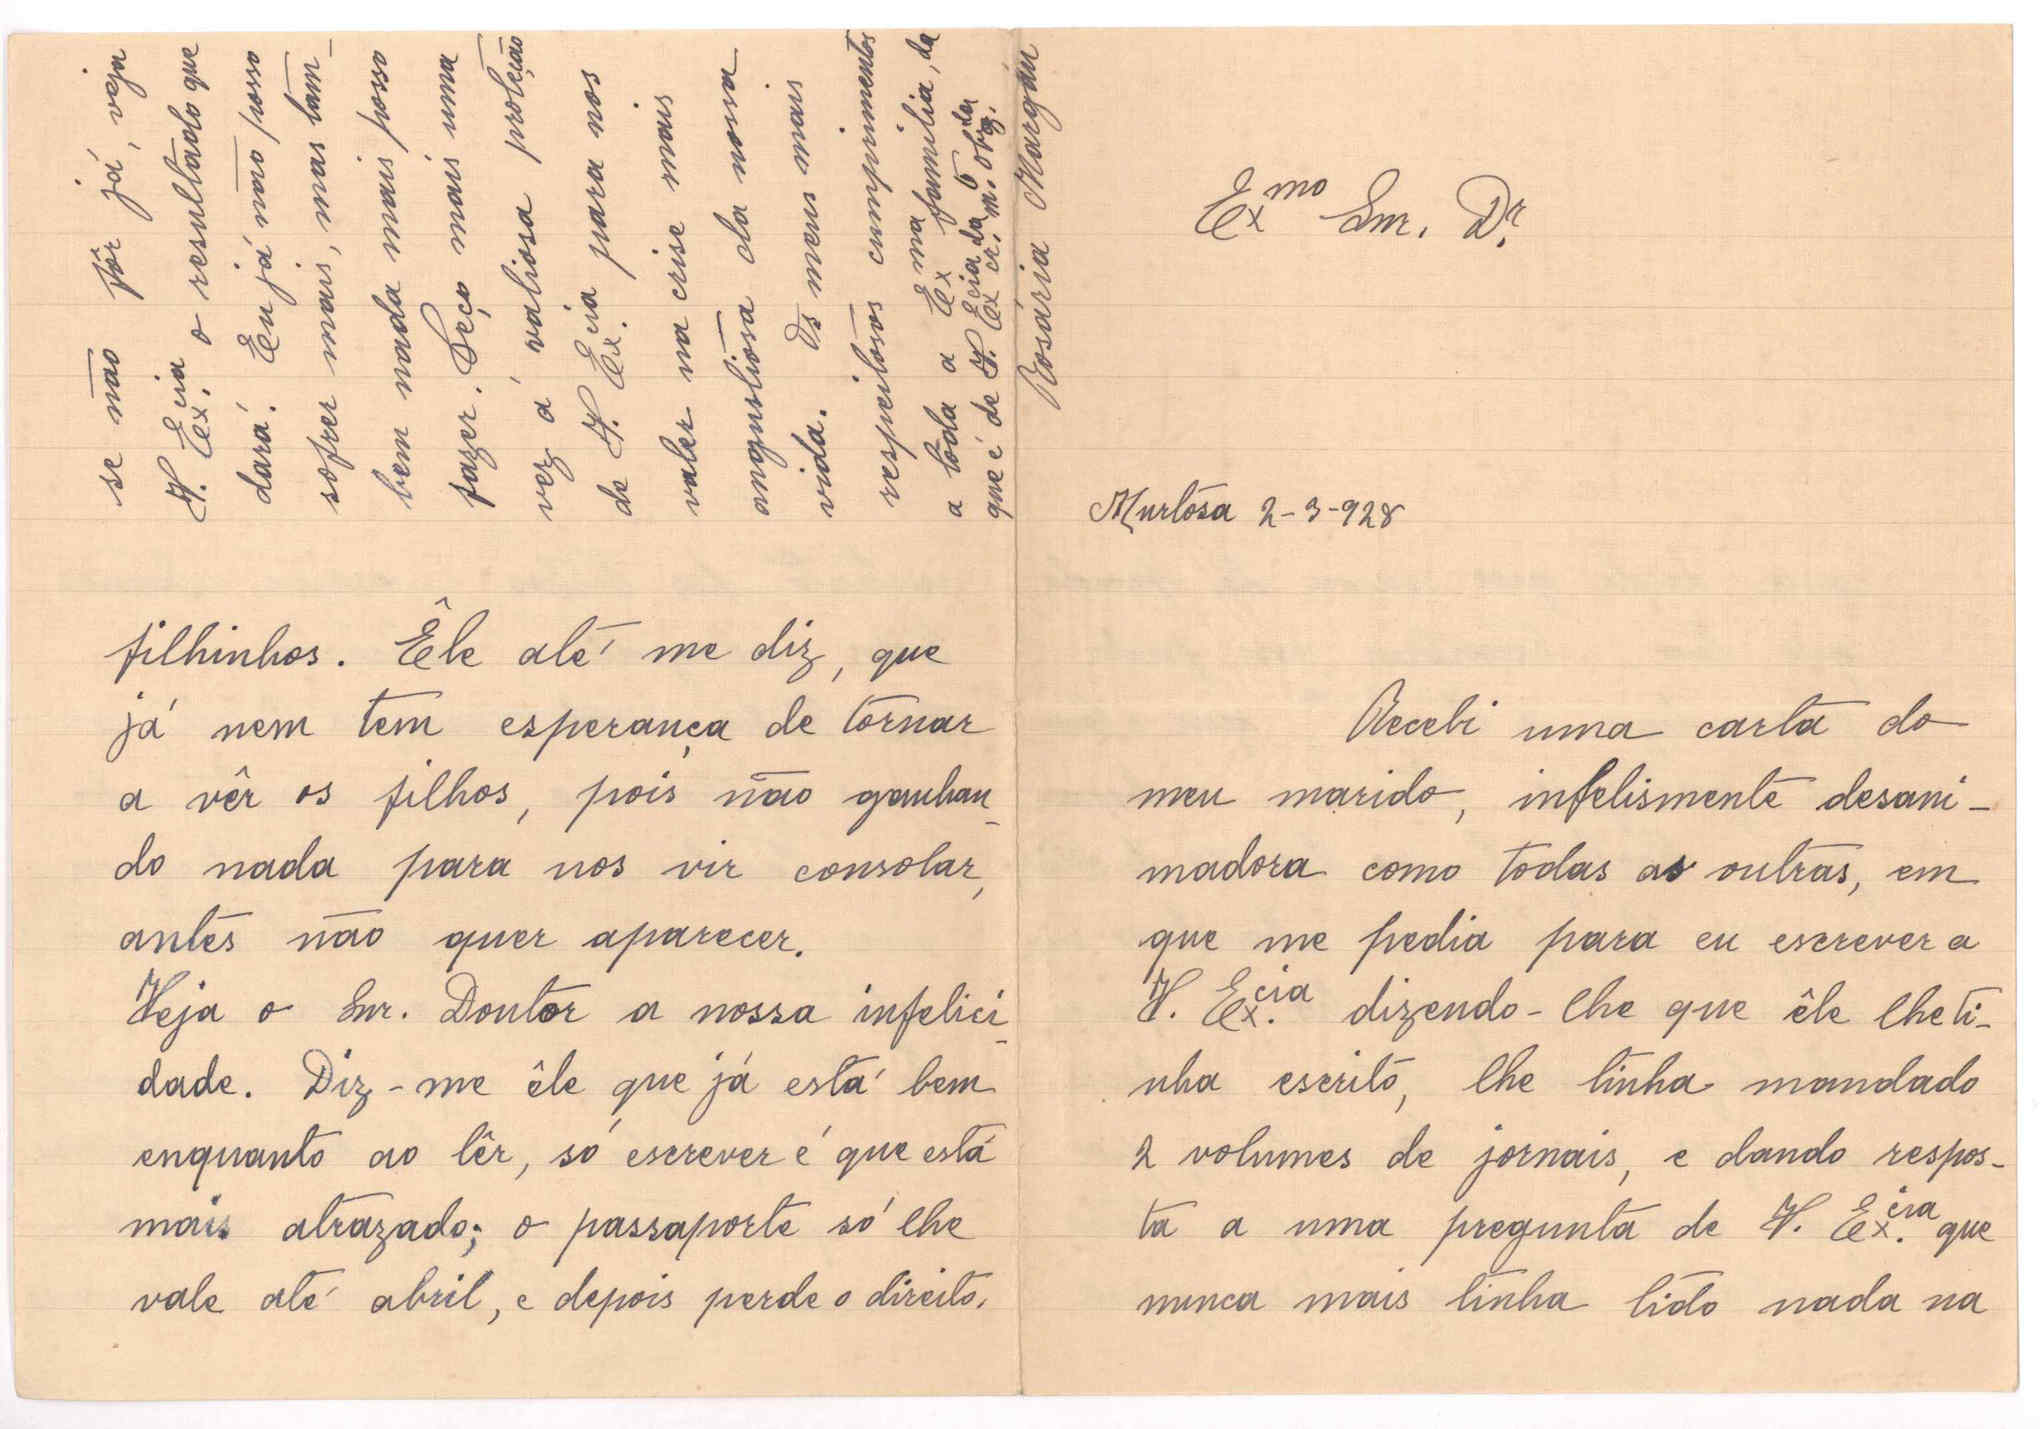 Exmo Snr. Dr.
Murtosa 2-3-928
Recebi uma carta do
meu marido, infelismente desani-
madora como todas as outras, em
que me pedia para eu escrever a
V. Ex.cia dizendo-lhe que êle lhe ti-
nha escrito, lhe tinha mandado
2 volumes de jornais, e dando respos-
ta a uma pregunta de V. Ex.cia que
nunca mais tinha tido nada na
filhinhos. Êle até me diz, que
já nem tem esperança de tornar
a vêr os filhos, pois não ganhan-
do nada para nos vir consolar,
antes não quer aparecer.
Veja o Snr. Doutor a nossa infelici-
dade. Diz-me êle que já está bem
enquanto ao lêr, só escrever é que está
mais atrazado; o passaporte só lhe
vale até abril, e depois perde o direito.
se não fôr já, veja
V. Ex.cia o resultado que
dará. Eu já não posso
sofrer mais, mas tam-
bem nada mais posso
fazer. Peço mais uma
vez á valiosa proteção
de V. Ex.cia para nos
valer na crise mais
angustiosa da nossa
vida. Os meus mais
respeitosos cumprimentos
a toda a Exma familia, da
que é de V. Excia cr.da m.to obg.da
Rosária